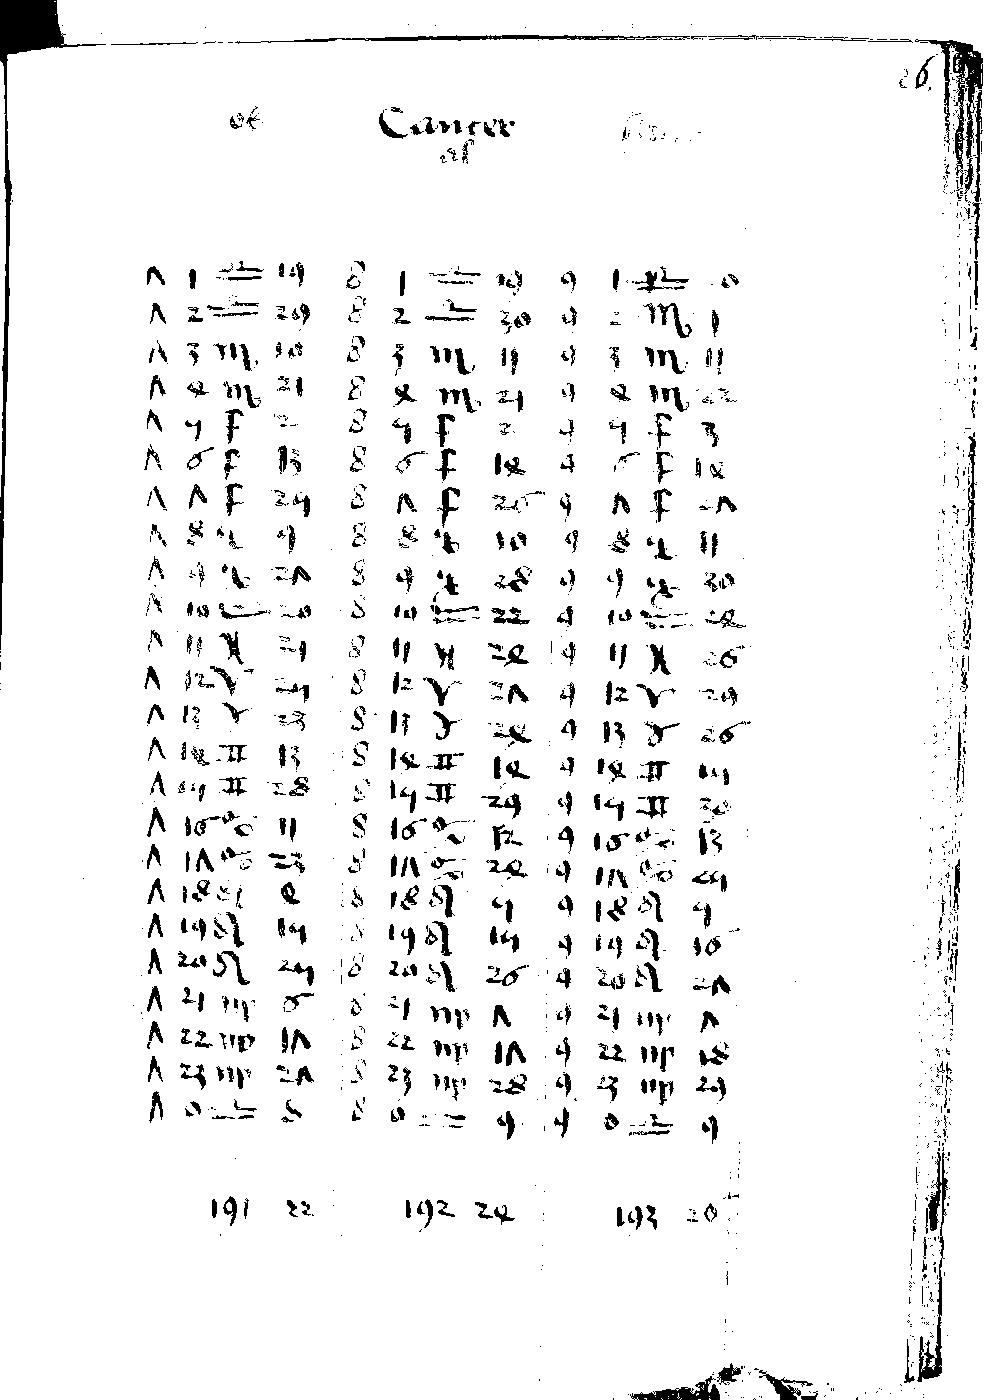 26.
Cancer
7 1 ♎ 19 8 1 ♎ 19 9 1 ♎
7 2 ♎ 29 8 2 ♎ 30 9 2 ♏ 1
7 3 ♏ 10 8 3 ♏ 11 9 3 ♏ 11
7 4 ♏ 21 8 4 ♏ 21 9 4 ♏ 22
7 5 ♐ 2 8 5 ♐ 2 9 5 ♐ 3
7 6 ♐ 13 8 6 ♐ 14 9 6 ♐ 14
7 7 ♐ 25 8 7 ♐ 26 9 7 ♐ 27
7 8 ♑ 9 8 8 ♑ 10 9 8 ♑ 11
7 9 ♑ 27 8 9 ♑ 28 9 9 ♑ 30
7 10 ♒ 20 8 10 ♒ 22 9 10 ♒ 24
7 11 ♓ 21 8 11 ♓ 24 9 11 ♓ 26
7 12 ♈ 25 8 12 ♈ 27 9 12 ♈ 29
7 13 ♉ 23 8 13 ♉ 24 9 13 ♉ 26
7 14 ♊ 13 8 14 ♊ 14 9 14 ♊ 15
7 15 ♊ 28 8 15 ♊ 29 9 15 ♊ 30
7 16 ♋ 11 8 16 ♋ 12 9 16 ♋ 13
7 17 ♋ 23 8 17 ♋ 24 9 17 ♋ 25
7 18 ♌ 4 8 18 ♌ 5 9 18 ♌ 5
7 19 ♌ 15 8 19 ♌ 15 9 19 ♌ 16
7 20 ♌ 25 8 20 ♌ 26 9 20 ♌ 27
7 21 ♍ 6 8 21 ♍ 7 9 21 ♍ 7
7 22 ♍ 17 8 22 ♍ 17 9 22 ♍ 18
7 23 ♍ 27 8 23 ♍ 28 9 23 ♍ 29
7 0 ♎ 8 8 0 ♎ 9 9 0 ♎ 9
191 22 192 24 193